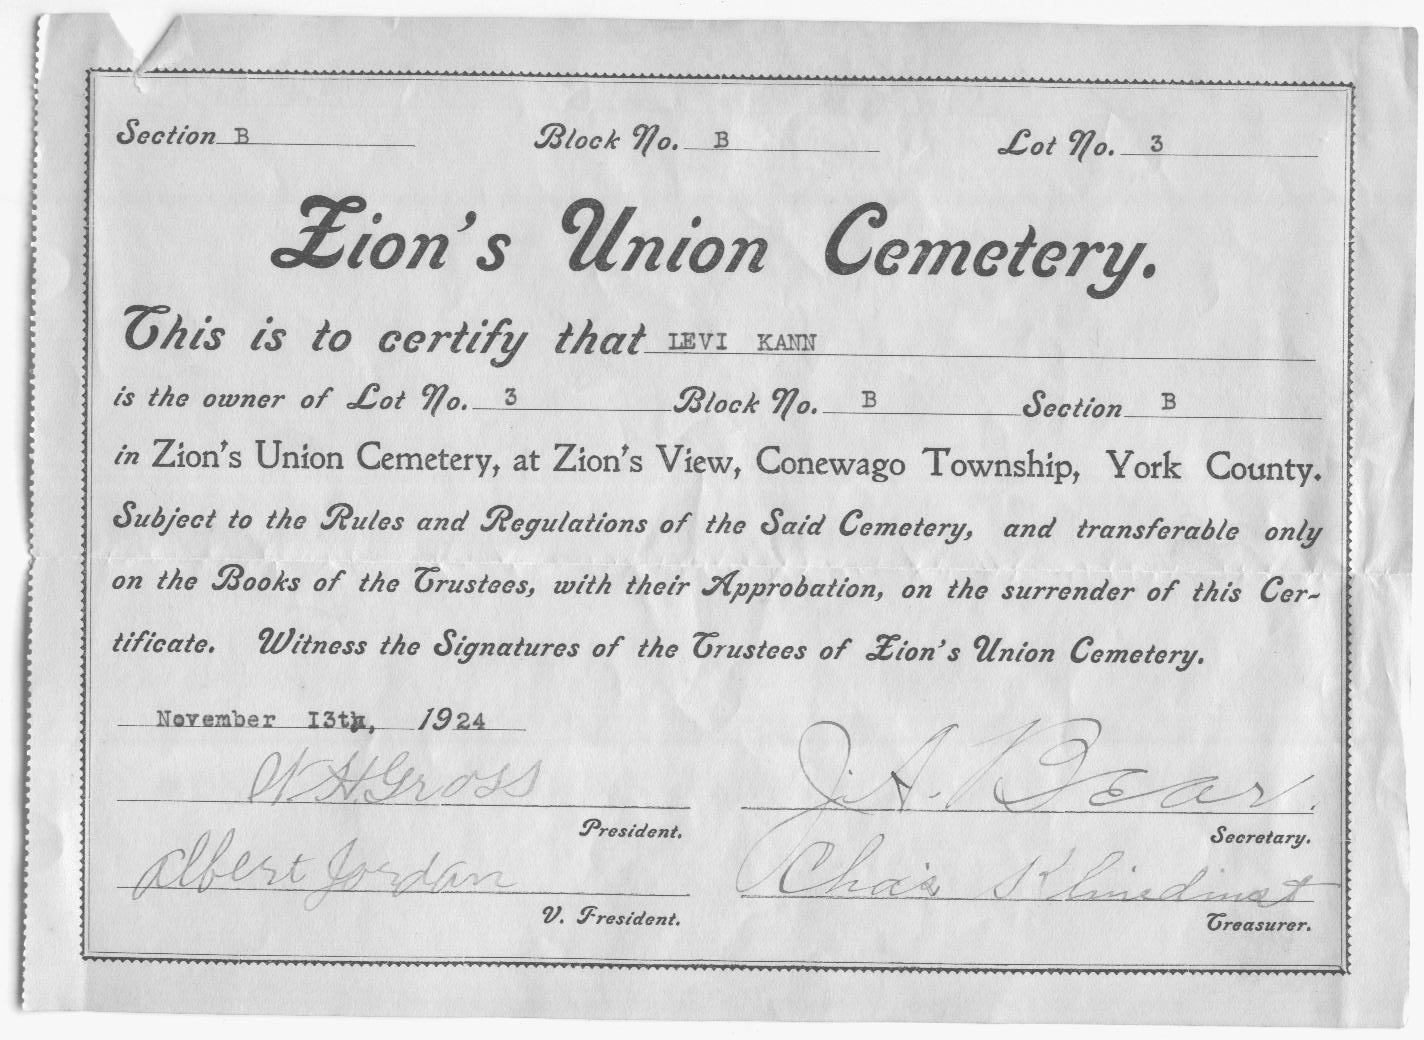 Section B Block No. B Lot No. 3
Zion's Union Cemetery.
This is to certify that LEVI KANN
is the owner of Lot No. 3 Block No. B Section B
in Zion's Union Cemetery, at Zion's View, Conewago Township, York County.
Subject to the Rules and Regulations of the Said Cemetery, and transferable only
on the Books of the Trustees, with their Approbation, on the surrender of this Cer-
tificate. Witness the Signatures of the Trustees of Zion's Union Cemetery.
November 13th, 1924
W. H. Gross J. A. Bear.
President. Secretary.
Albert Jordan Cha's Klinedinst
V. President. Treasurer.